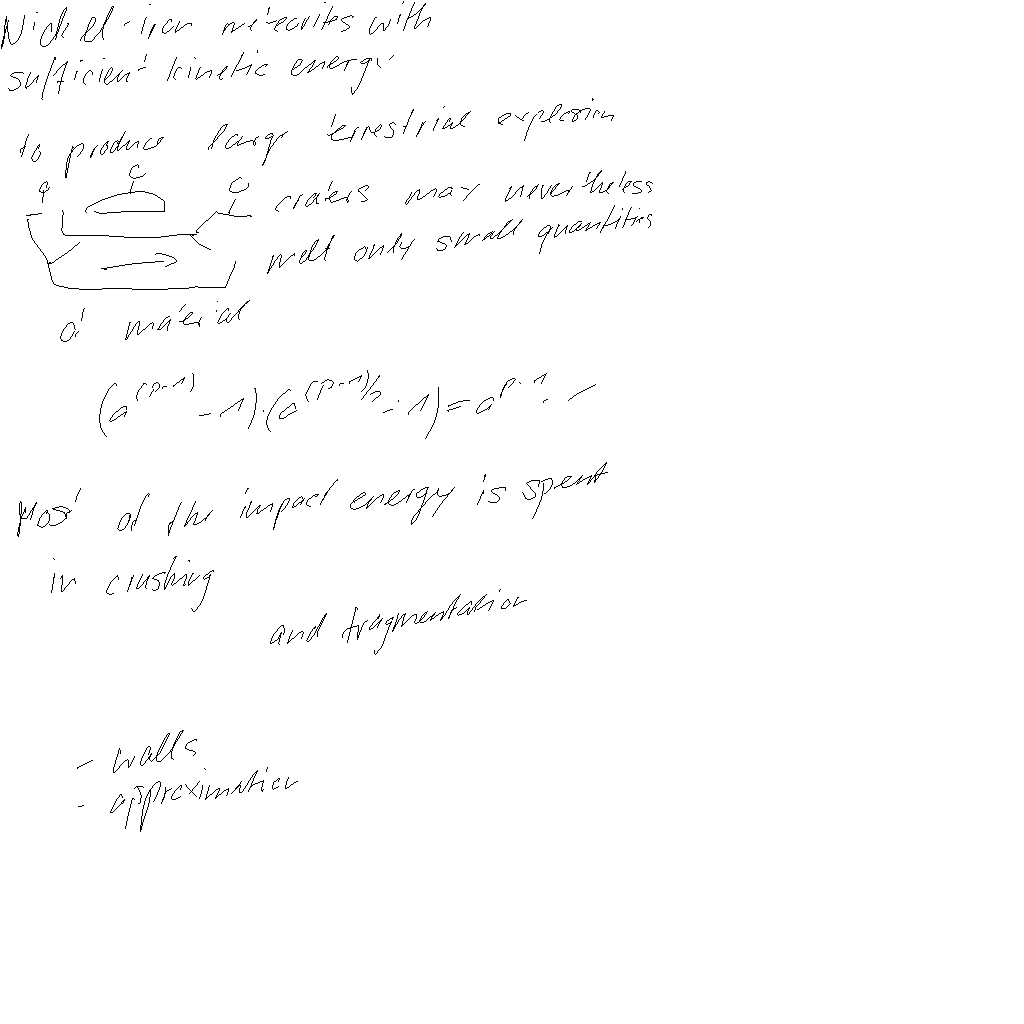 Nickel-iron meteorites with
sufficient kinetic energy
to produce large terrestrial explosion
craters may nevertheless
melt only small quantities
of material
(a^(p-1) - 1)·(a^(p-1)/2 - 1) = a^p-1 · -
Most of the impact energy is spent
in crushing
and fragmentation
- walls
- approximation